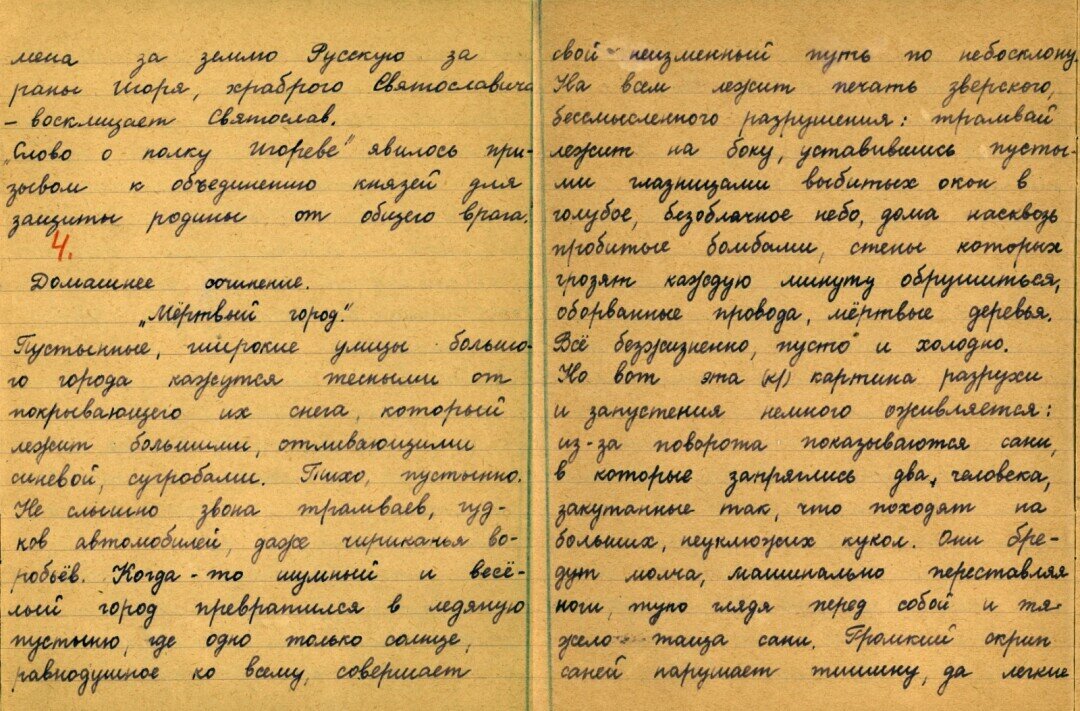 мена за землю Русскую за
раны Игоря, храброго Святославича
– восклицает Святослав.
„Слово о полку Игореве" явилось при-
зывом к объединению князей для
защиты родины от общего врага.
4.
Домашнее сочинение.
„Мёртвый город."
Пустынные, широкие улицы большо-
го города кажутся тесными от
покрывающего их снега, который
лежит большими, отливающими
синевой, сугробами. Тихо, пустынно.
Не слышно звона трамваев, гуд-
ков автомобилей, даже чириканья во-
робьёв. Когда-то шумный и весё-
лый город превратился в ледяную
пустыню, где одно только солнце,
равнодушное ко всему, совершает
свой неизменный путь по небосклону.
На всем лежит печать зверского,
бессмысленного разрушения: трамвай
лежит на боку, уставившись пусты-
ми глазницами выбитых окон в
голубое, безоблачное небо, дома насквозь
пробитые бомбами, стены которых
грозят каждую минуту обрушиться,
оборванные провода, мёртвые деревья.
Всё безжизненно, пусто и холодно.
Но вот эта (кр) картина разрухи
и запустения немного оживляется:
из-за поворота показываются сани,
в которые запряглись два, человека,
закутанные так, что походят на
больших, неуклюжих кукол. Они бре-
дут молча, машинально переставляя
ноги, тупо глядя перед собой и тя-
жело таща сани. Громкий скрип
саней нарушает тишину, да легкие